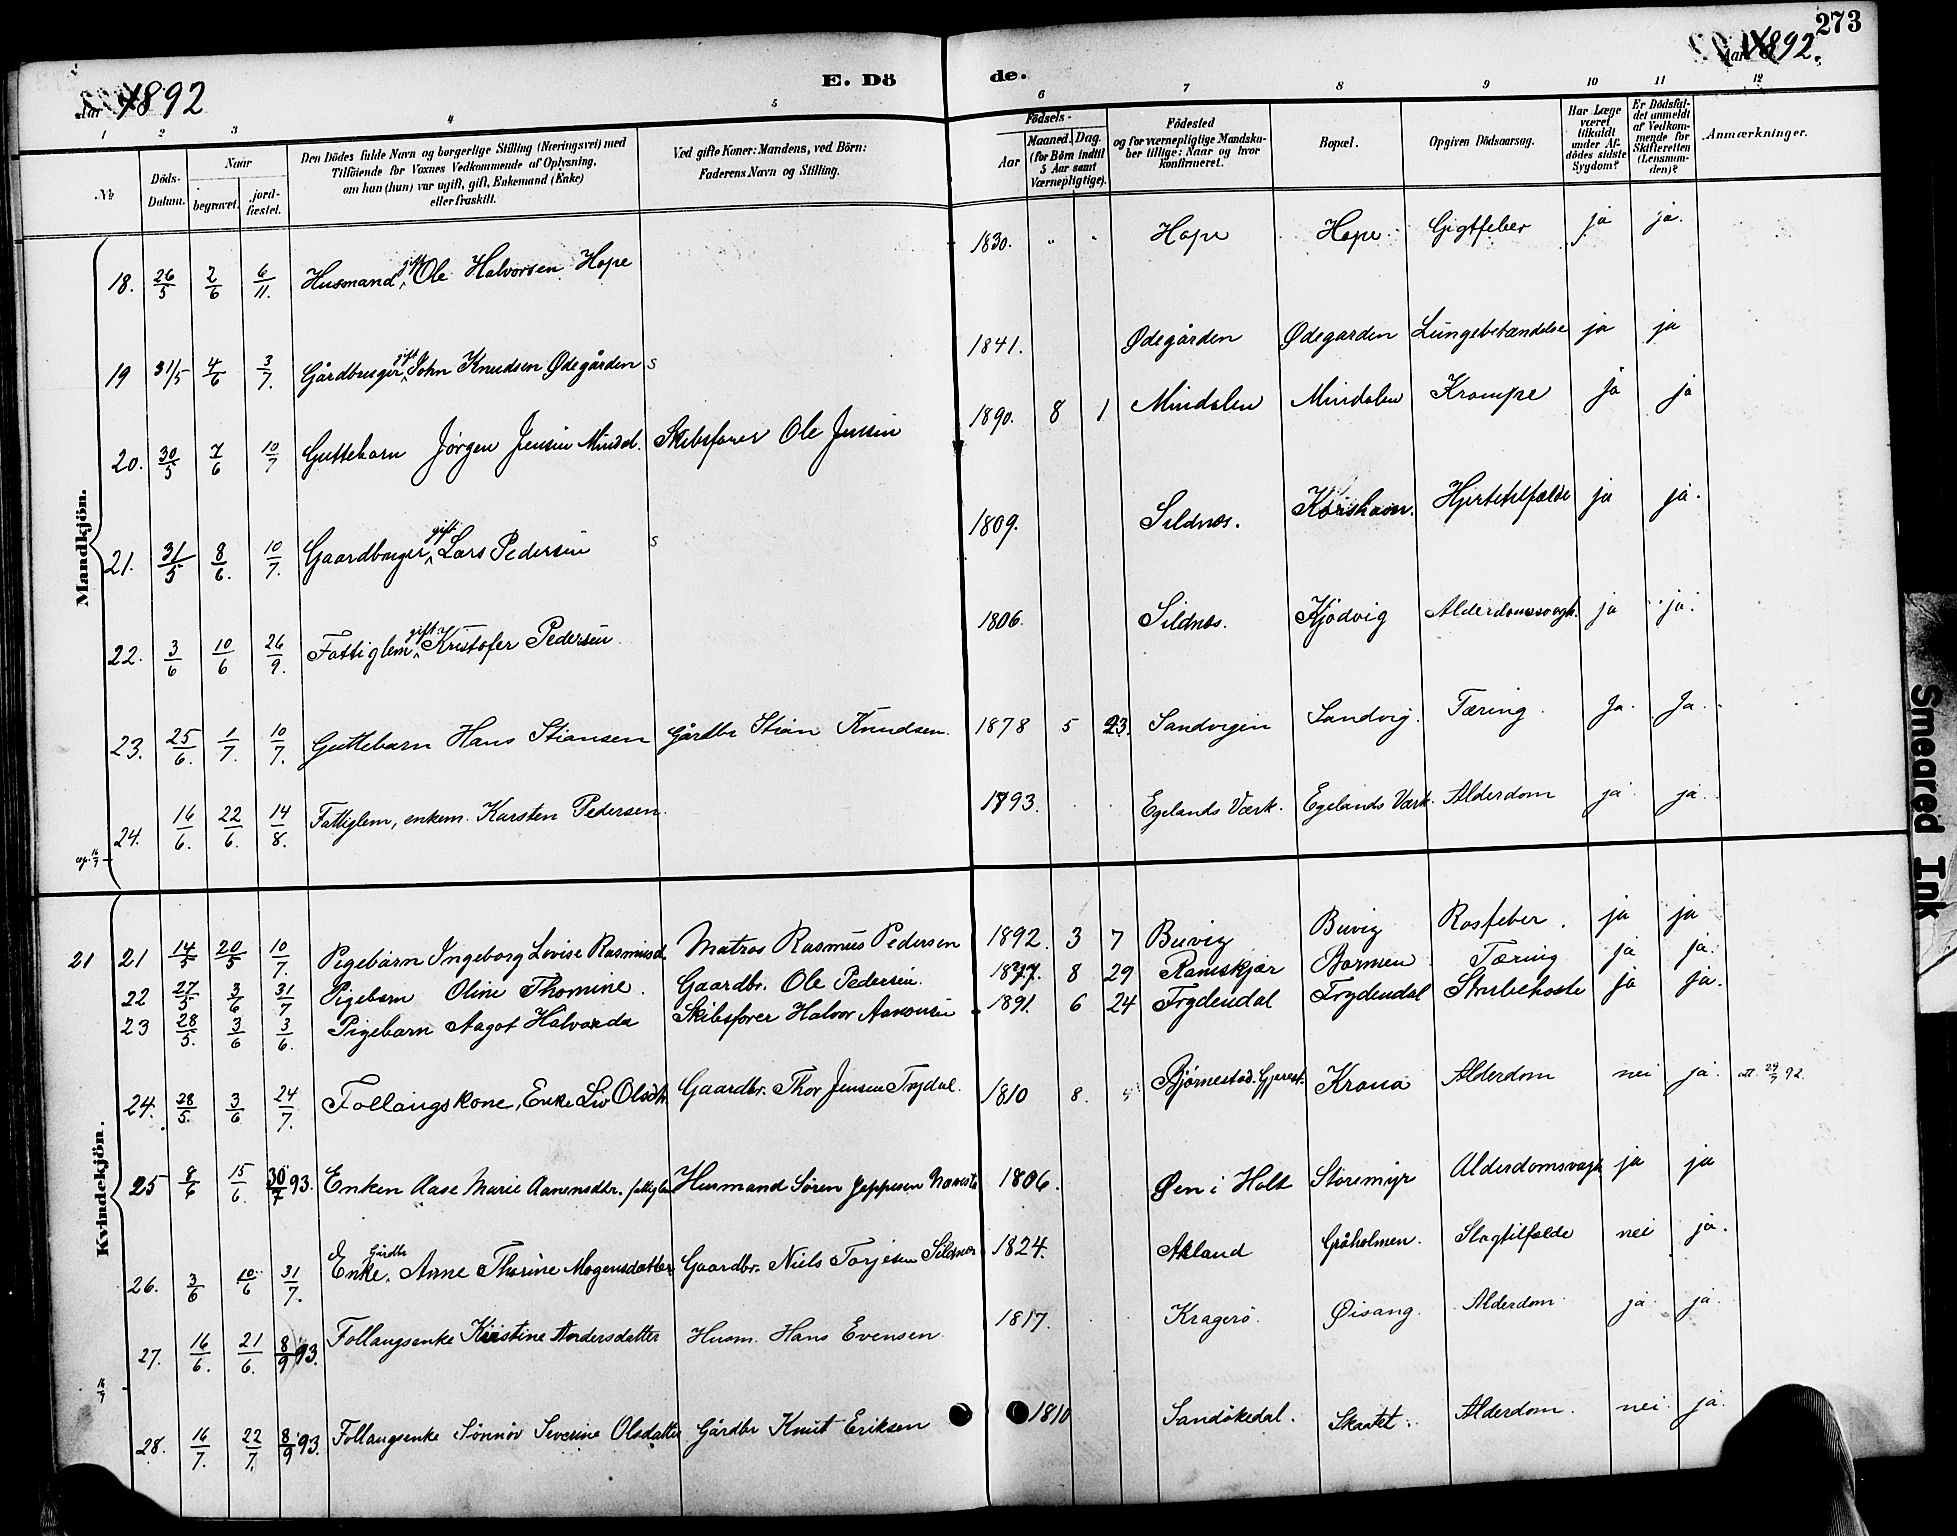 273
Aar 1892
E. Dö
de.
Aar 1892.
1 2 3 4 5 6 7 8 9 10 11 12
№
Döds-Datum.
Naar
begravet.
jord-fæstet.
Den Dödes fulde Navn og borgerlige Stilling (Næringsvei) med
Tilföiende for Voxnes Vedkommende af Oplysning,
om han (hun) var ugift, gift, Enkemand (Enke)
eller fraskilt.
Ved gifte Koner: Mandens, ved Börn:
Faderens Navn og Stilling.
Födsels-
Aar
Maaned. Dag.
(for Börn indtil
5 Aar samt
Værnepligtige).
Födested
og for værnepligtige Mandska-
ber tillige: Naar og hvor
konfirmeret.
Bopæl.
Opgiven Dödsaarsag.
Har Læge
været
tilkaldt
under Af-
dödes sidste
Sygdom?
Er Dödsfal-
det anmeldt
af Vedkom-
mende for
Skifteretten
(Lensman-
den)?
Anmærkninger.
Mandkjön.
18. 26/5 2/6 6/11. Husmand gift Ole Halvorsen Hope 1830. " " Hope Hope Gigtfeber ja ja.
19 31/5 4/6 3/7. Gårdbruger gift John Knudsen Ødegården s 1841. Ødegården Ødegarden Lungebetændelse ja ja
20. 30/5 7/6 10/7 Guttebarn Jørgen Jensen Mindal. Skibsfører Ole Jensen 1890. 8 1 Mindalen Mindalen Krampe ja ja
21. 31/5 8/6. 10/7. Gaardbruger gift Lars Pedersen s 1809. Sildnæs. Korshavn. Hjertetilfælde ja ja.
22. 3/6 10/6 26/9. Fattiglem gift Kristofer Pedersen 1806. Sildnæs. Kjødvig Alderdomssvagh. ja ja.
23. 25/6. 1/7. 10/7. Guttebarn Hans Stiansen Gårdbr Stian Knudsen. 1878 5 23. Sandvigen Sandvig. Tæring. Ja. Ja.
24. 16/6. 22/6. 14/8. Fattiglem, enkem. Karsten Pedersen. 1793. Egelands Værk. Egelands Værk. Alderdom ja ja.
Kvindekjön.
21 21 14/5 20/5 10/7. Pigebarn Ingeborg Lovise Rasmusd. Matros Rasmus Pedersen 1892. 3 7 Buvig Buvig Rosfeber. ja ja
22 27/5 3/6 31/7 Pigebarn Oline Thomine. Gaardbr. Ole Pedersen. 1877. 8 29 Ramskjær Barmen Tæring ja ja.
23 28/5. 3/6 3/6. Pigebarn Aagot Halvarda Skibsfører Halvor Aanonsen 1891. 6 24 Frydendal Frydendal Strubehoste ja ja.
24. 28/5. 3/6 24/7. Follaugskone, Enke Liv Olsdtr. Gaardbr. Thor Jensen Trydal. 1810 8. Bjørnestad. Gjerest. Krana Alderdom nei ja. att. 29/7 92.
25 8/6 15/6. 30/7 93. Enken Aase Marie Aanensdtr. fattiglem Husmand Søren Jeppesen 1806. Øen i Holt Storemyr Alderdomsvagh. ja ja
26. 3/6 10/6 31/7. Gårdbr Enke. Anne Thorine Mogensdatter Gaardbr. Niels Torjesen Sildnæs 1824. Akland Gråholmen. Slagtilfælde nei ja.
27. 16/6. 21/6. 8/9 93. Follaugsenke Kristine Andersdatter Husm. Hans Evensen 1817. Kragerö. Øisang. Alderdom ja ja.
28. 16/7. 22/7. 8/9 93. Follaugsenke Sönnöv Severine Olsdatter Gårdbr Knut Eriksen 1810 Sandökedal. Skaatet. Alderdom. nei ja.
Smeared Ink